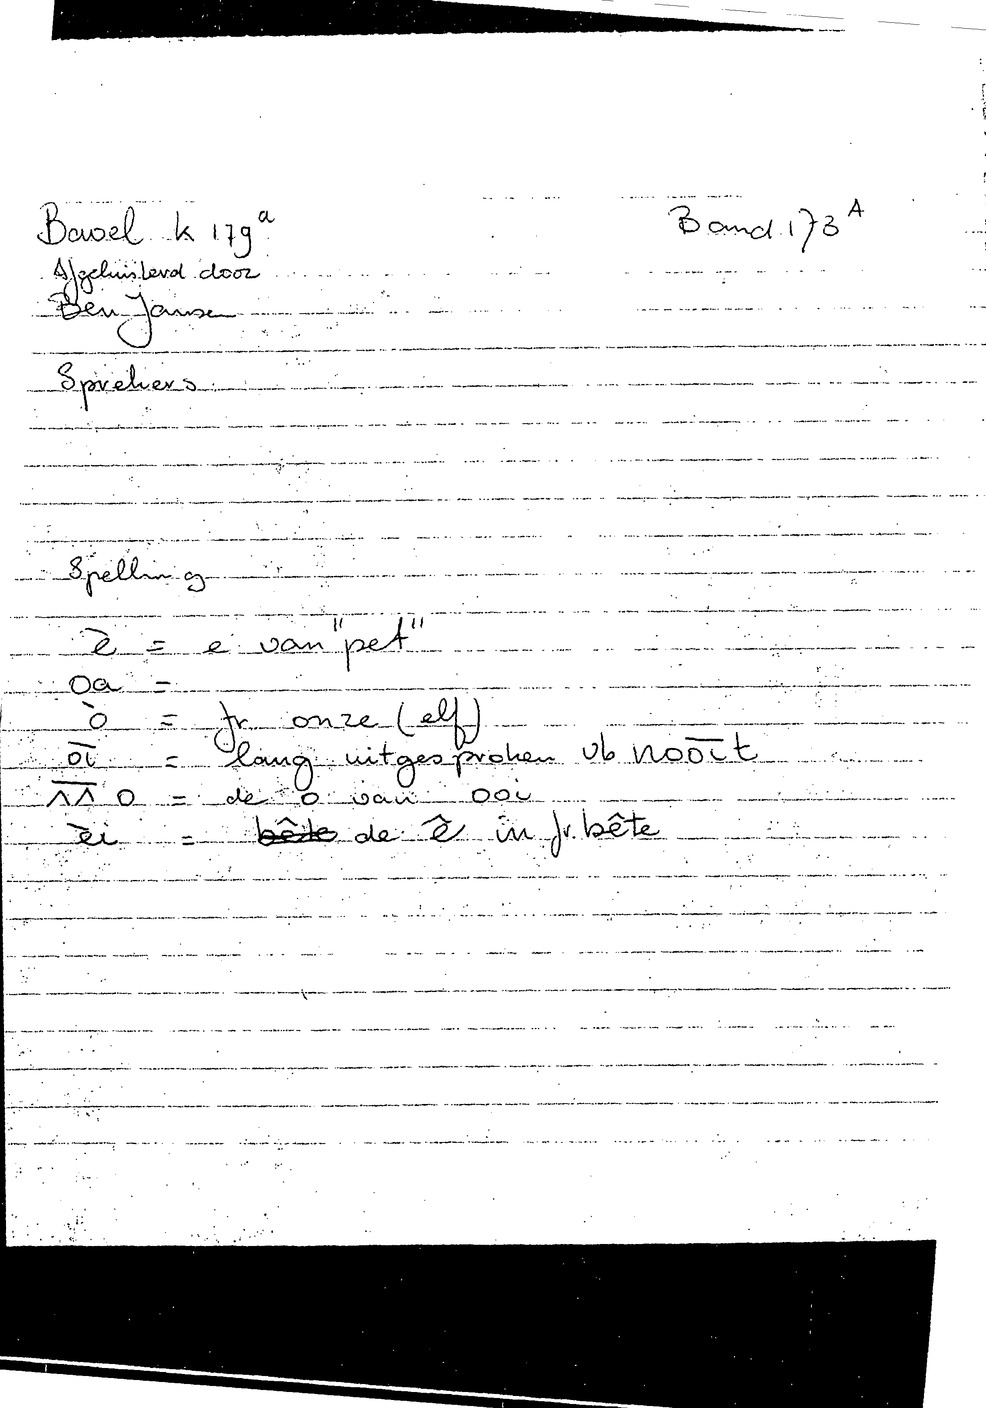 Bavel k 179a Band 173 A
Afgeluisterd door
Ben Janse
Sprekers
Spelling
è = e van "pet"
oa =
ò = fr. onze (elf)
o͞i = lang uitgesproken vb noo͞it
o = de o van ooi
èi = ~~bête~~ de ê in fr. bête